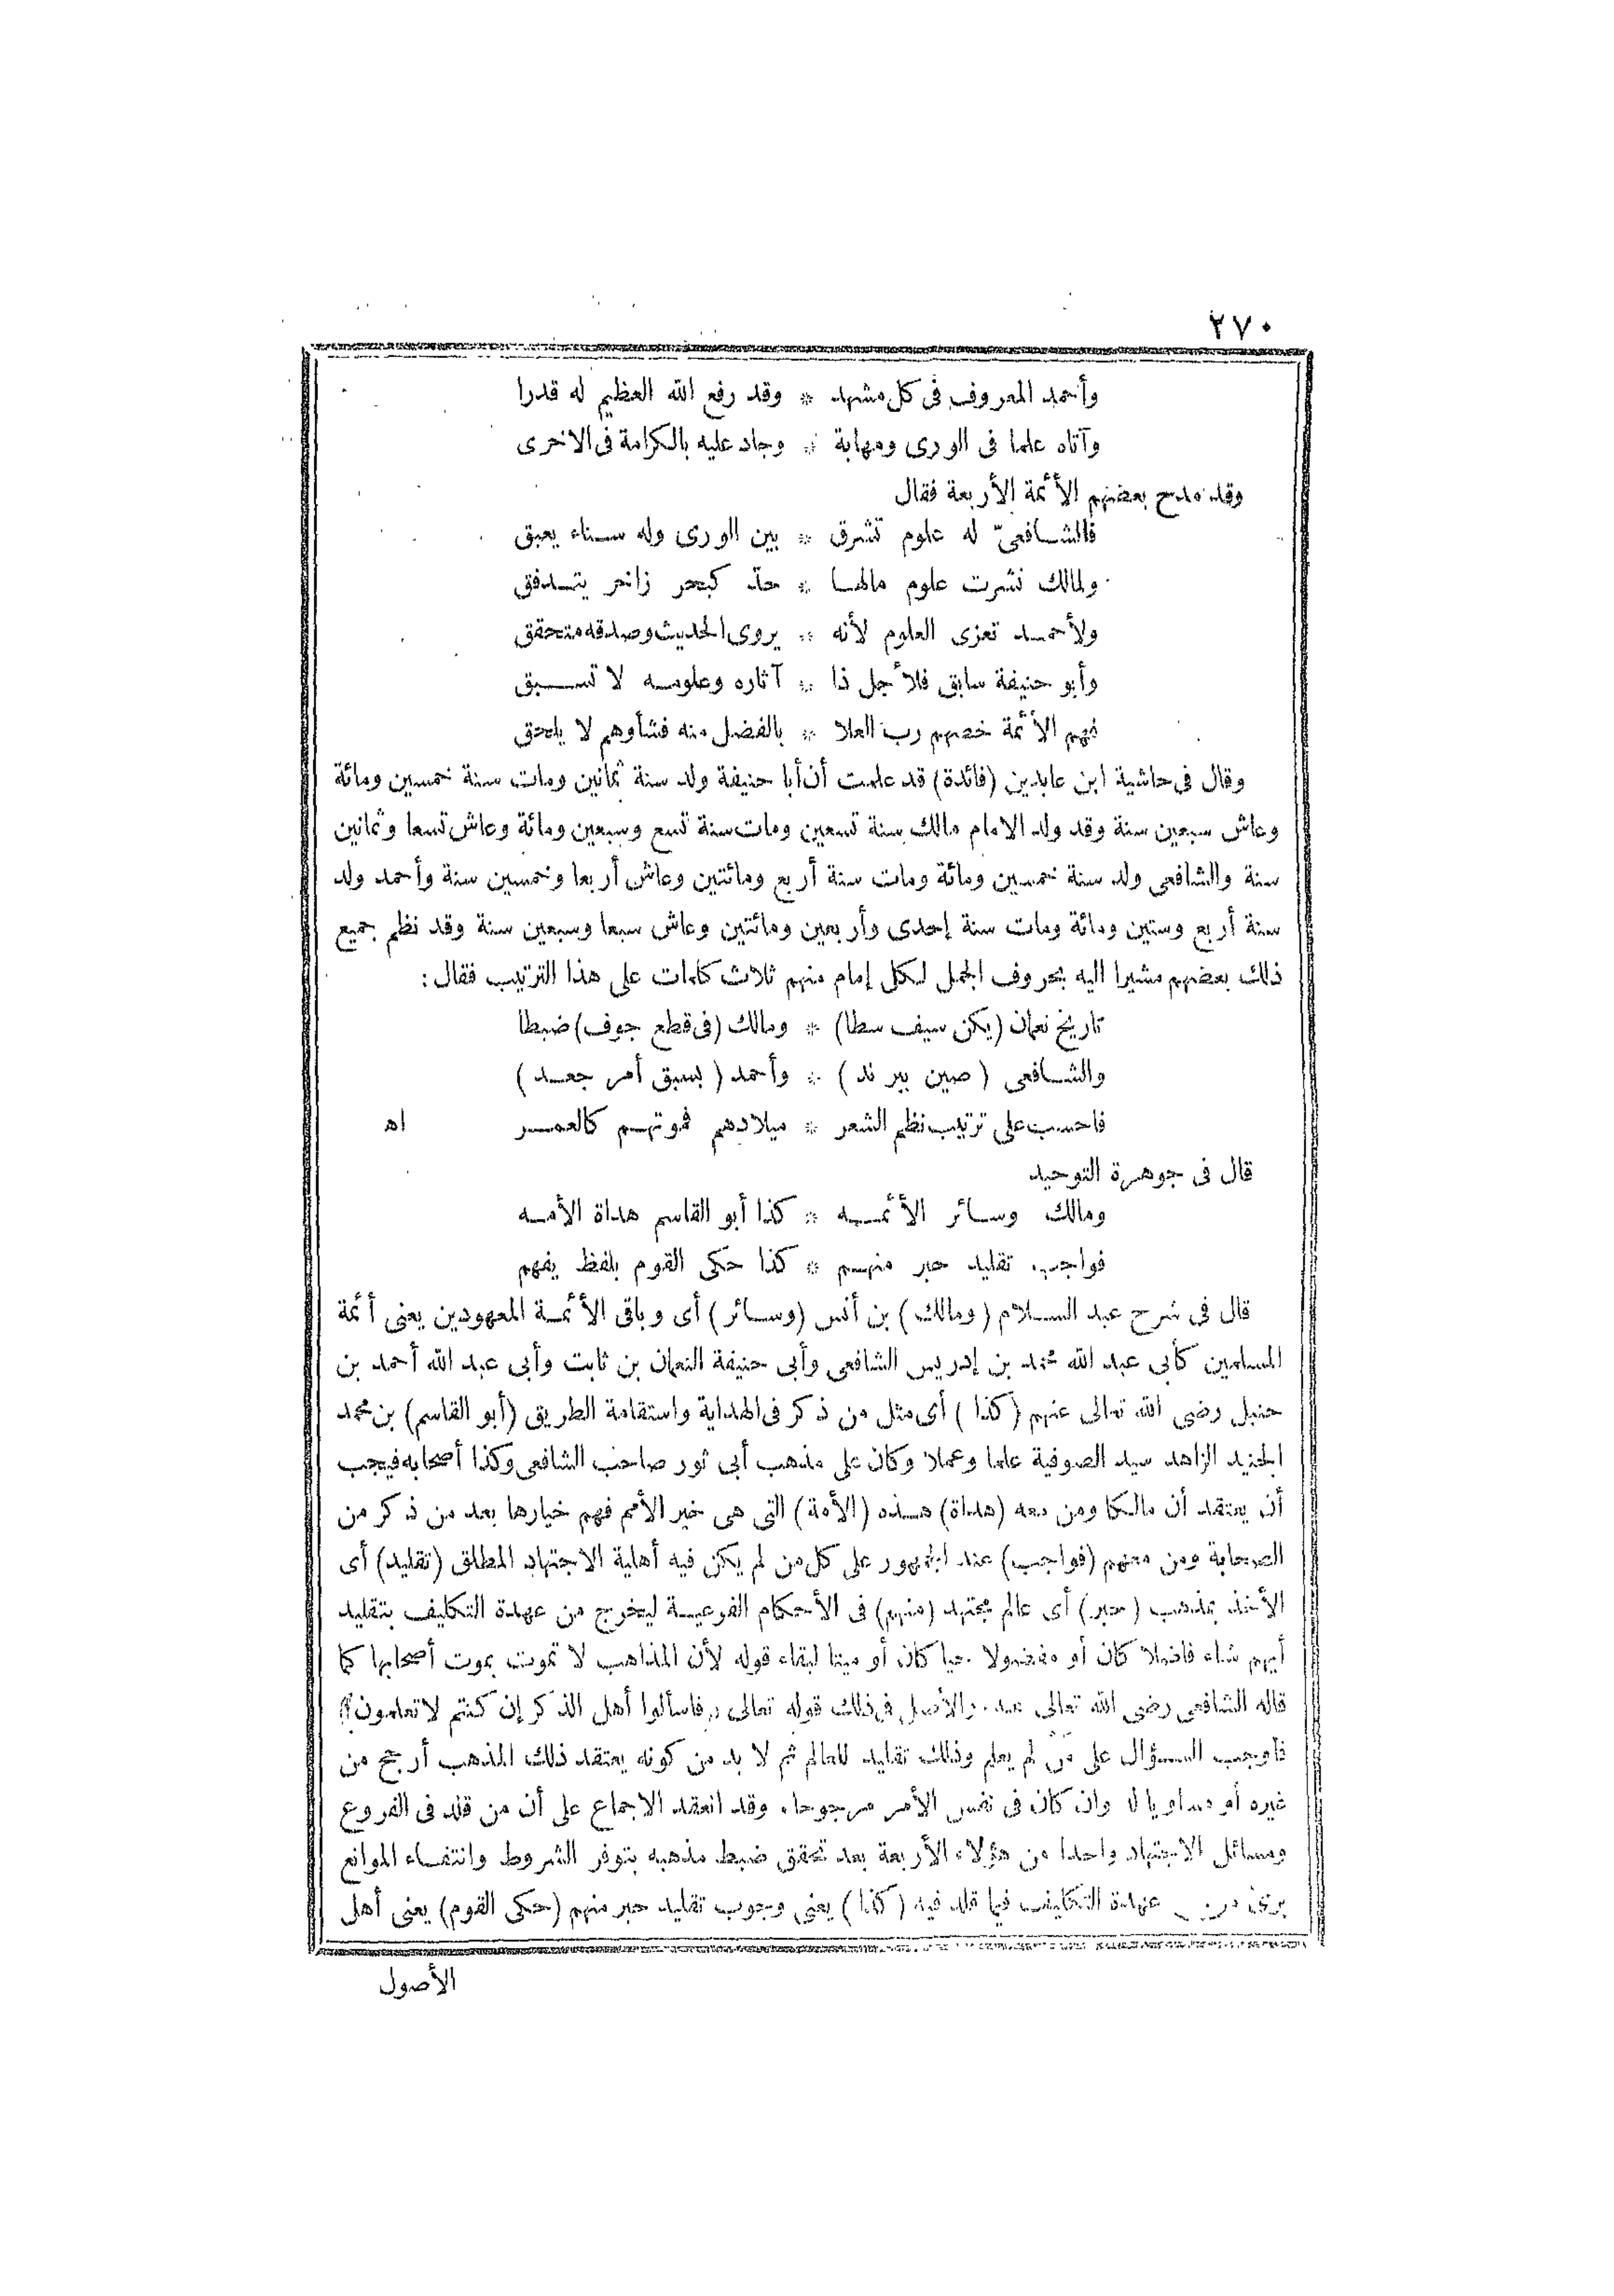 ٢٧٠
وأحمد المعروف فى كل مشهد * وقد رفع الله العظيم له قدرا
وآتاه علما فى الورى ومهابة * وجاد عليه بالكرامة فى الاخرى
وقد مدح بعضهم الأئمة الأربعة فقال
فالشافعىّ له علوم تشرق * بين الورى وله سناء يعبق
ولمالك نشرت علوم مالها * حدّ كبحر زاخر يتدفق
ولأحمد تعزى العلوم لأنه * يروى الحديث وصدقه متحقق
وأبو حنيفة سابق فلأجل ذا * آثاره وعلومه لا تسبق
فهم الأئمة خصهم رب العلا * بالفضل منه فشأوهم لا يلحق
وقال فى حاشية ابن عابدين (فائدة) قد علمت أن أبا حنيفة ولد سنة ثمانين ومات سنة خمسين ومائة
وعاش سبعين سنة وقد ولد الامام مالك سنة تسعين ومات سنة تسع وسبعين ومائة وعاش تسعا وثمانين
سنة والشافعى ولد سنة خمسين ومائة ومات سنة أربع ومائتين وعاش أربعا وخمسين سنة وأحمد ولد
سنة أربع وستين ومائة ومات سنة إحدى وأربعين ومائتين وعاش سبعا وسبعين سنة وقد نظم جميع
ذلك بعضهم مشيرا اليه بحروف الجمل لكل إمام منهم ثلاث كلمات على هذا الترتيب فقال :
تاريخ نعمان (يكن سيف سطا) * ومالك (فى قطع جوف) ضبطا
والشافعى (صين ببر ند) * وأحمد (بسبق أمر جعد)
فاحسب على ترتيب نظم الشعر * ميلادهم فموتهم كالعمر اه
قال فى جوهرة التوحيد
ومالك وسائر الأئمه * كذا أبو القاسم هداة الأمه
فواجب تقليد حبر منهم * كذا حكى القوم بلفظ يفهم
قال فى شرح عبد السلام (ومالك) بن أنس (وسائر) أى وباقى الأئمة المعهودين يعنى أئمة
المسلمين كأبى عبد الله محمد بن إدريس الشافعى وأبى حنيفة النعمان بن ثابت وأبى عبد الله أحمد بن
حنبل رضى الله تعالى عنهم (كذا) أى مثل من ذكر فى الهداية واستقامة الطريق (أبو القاسم) بن محمد
الجنيد الزاهد سيد الصوفية علما وعملا وكان على مذهب أبى ثور صاحب الشافعى وكذا أصحابه فيجب
أن يعتقد أن مالكا ومن معه (هداة) هذه (الأمة) التى هى خير الأمم فهم خيارها بعد من ذكر من
الصحابة ومن معهم (فواجب) عند الجمهور على كل من لم يكن فيه أهلية الاجتهاد المطلق (تقليد) أى
الأخذ بمذهب (حبر) أى عالم مجتهد (منهم) فى الأحكام الفرعية ليخرج من عهدة التكليف بتقليد
أيهم شاء فاضلا كان أو مفضولا حيا كان أو ميتا لبقاء قوله لأن المذاهب لا تموت بموت أصحابها كما
قاله الشافعى رضى الله تعالى عنه. والأصل فى ذلك قوله تعالى «فاسألوا أهل الذكر إن كنتم لا تعلمون»
فأوجب السؤال على من لم يعلم وذلك تقليد للعالم ثم لا بد من كونه يعتقد ذلك المذهب أرجح من
غيره أو مساويا له وان كان فى نفس الأمر مرجوحا. وقد انعقد الاجماع على أن من قلد فى الفروع
ومسائل الاجتهاد واحدا من هؤلاء الأربعة بعد تحقق ضبط مذهبه بتوفر الشروط وانتفاء الموانع
برئ من عهدة التكليف فيما قلد فيه (كذا) يعنى وجوب تقليد حبر منهم (حكى القوم) يعنى أهل
الأصول